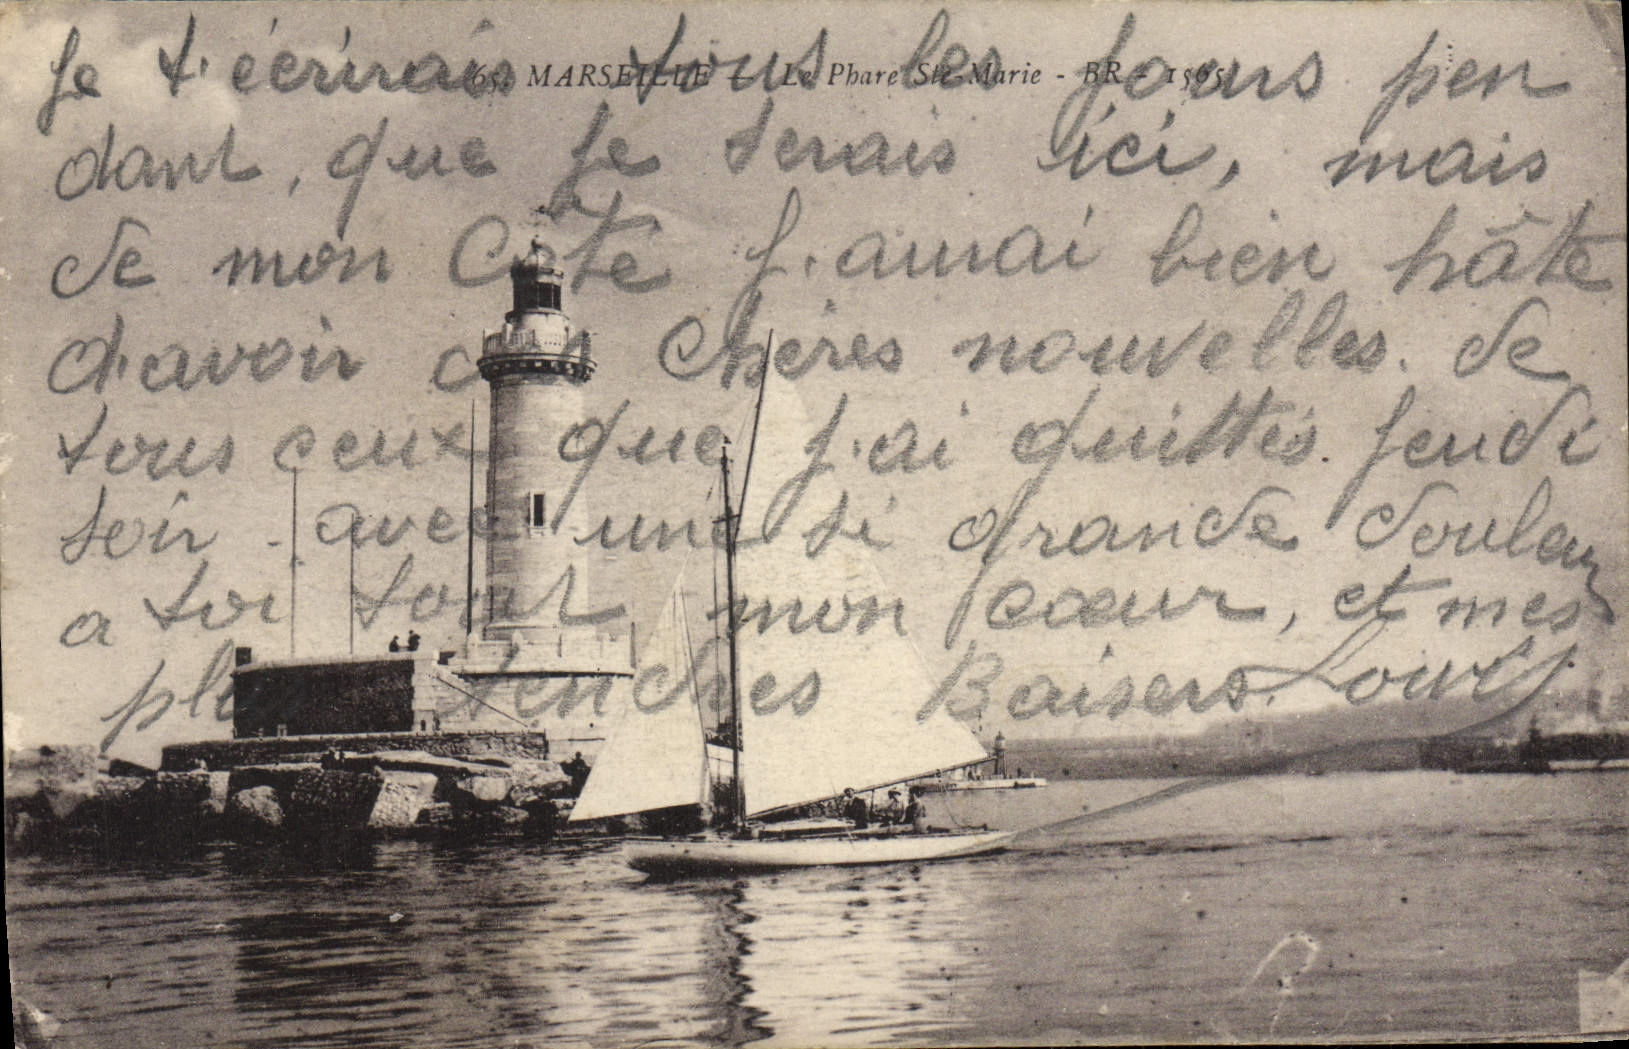 Je t'écrirais tous les jours pen
65. MARSEILLE - Le Phare Ste-Marie - BR - 1565
dant, que je serais ici, mais
de mon Côté j'aurai bien hâte
d'avoir des Chères nouvelles. de
tous ceux que j'ai quittés. jeudi
soir - avec une si grande douleur
a toi tout mon cœur, et mes
plus tendres Baisers. Louis